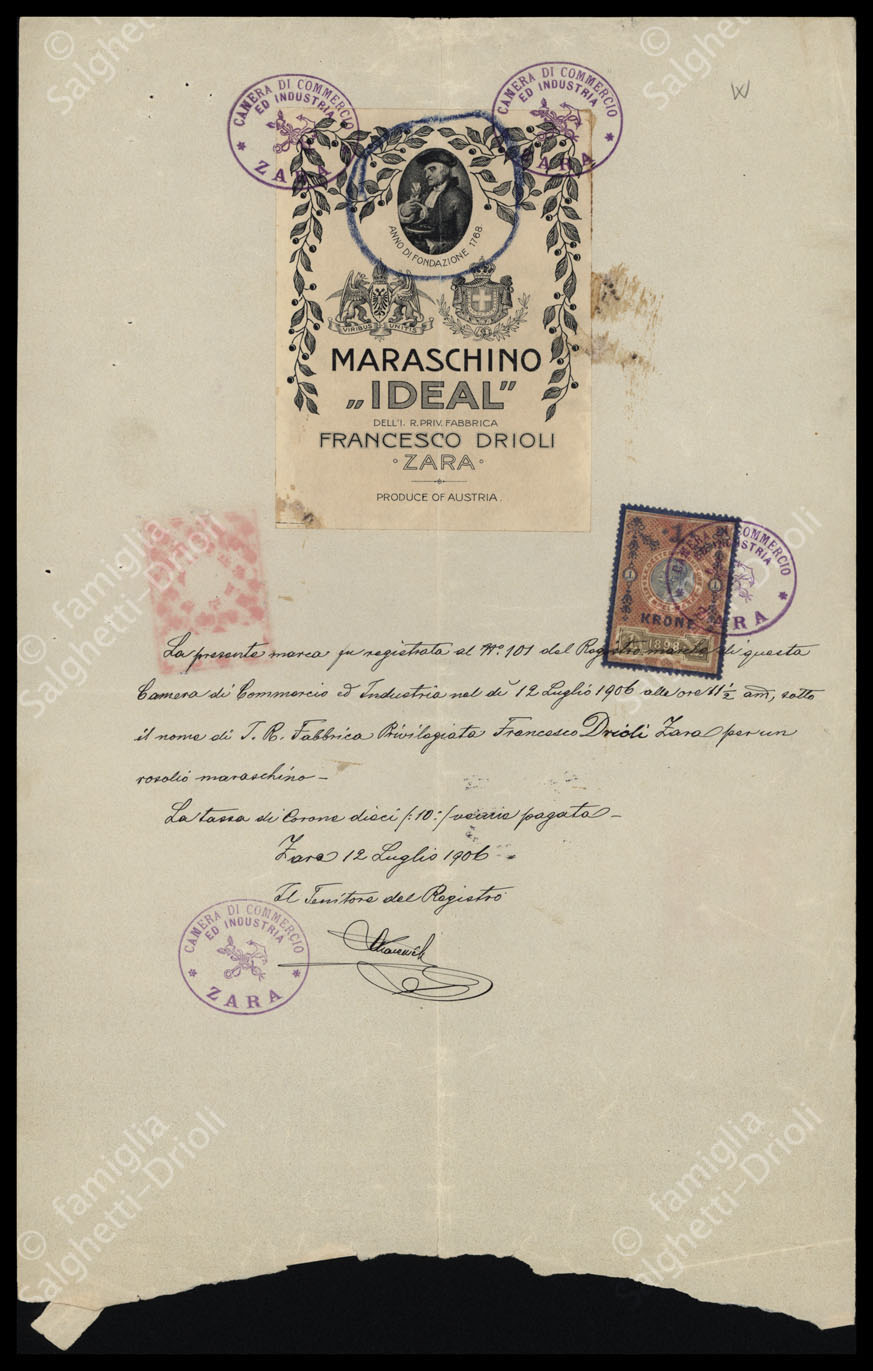 © famiglia Salghetti-Drioli
© famiglia Salghetti-Drioli
W
CAMERA DI COMMERCIO
ED INDUSTRIA
* ZARA *
CAMERA DI COMMERCIO
ED INDUSTRIA
* ZARA *
ANNO DI FONDAZIONE 1768
VIRIBUS UNITIS
MARASCHINO
„IDEAL”
DELL'I. R. PRIV. FABBRICA
FRANCESCO DRIOLI
ZARA
PRODUCE OF AUSTRIA.
1
1 1
KRONE
1898
CAMERA DI COMMERCIO
ED INDUSTRIA
* ZARA
© famiglia Salghetti-Drioli
© famiglia Salghetti-Drioli
La presente marca fu registrata al Nº. 101 del Registro marche di questa
Camera di Commercio ed Industria nel dì 12 Luglio 1906 alle ore 11½ am, sotto
il nome di I. R. Fabbrica Privilegiata Francesco Drioli Zara per un
rosolio maraschino –
La tassa di Corone dieci /:10:/ venne pagata –
Zara 12 Luglio 1906
Il Tenitore del Registro
CAMERA DI COMMERCIO
ED INDUSTRIA
* ZARA *
© famiglia Salghetti-Drioli
© famiglia Salghetti-Drioli